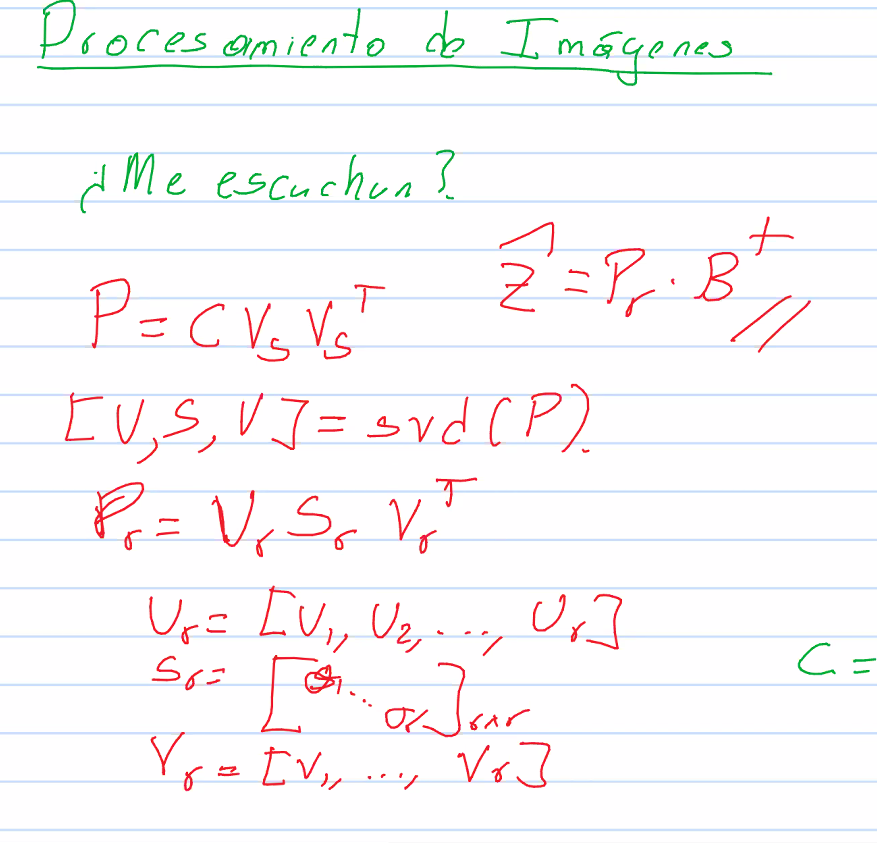 Procesamiento de Imágenes
¿Me escuchan?
Ẑ = Pᵣ · B⁺ //
P = C Vₛ Vₛᵀ
[U, S, V] = svd(P).
Pᵣ = Uᵣ Sᵣ Vᵣᵀ
Uᵣ = [U₁, U₂, ..., Uᵣ]
Sᵣ = [σ₁ ⋱ σᵣ]ᵣₓᵣ
C =
Vᵣ = [V₁, ..., Vᵣ]